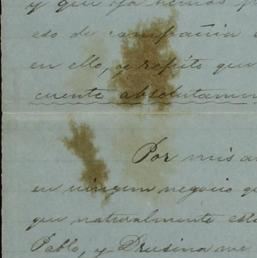 y que ya hemos
eso de campaña
en ello, y repito que
cuente absolutamen
Por mis a
en ningun negocio q
que naturalmente est
Pablo, y Drusina me